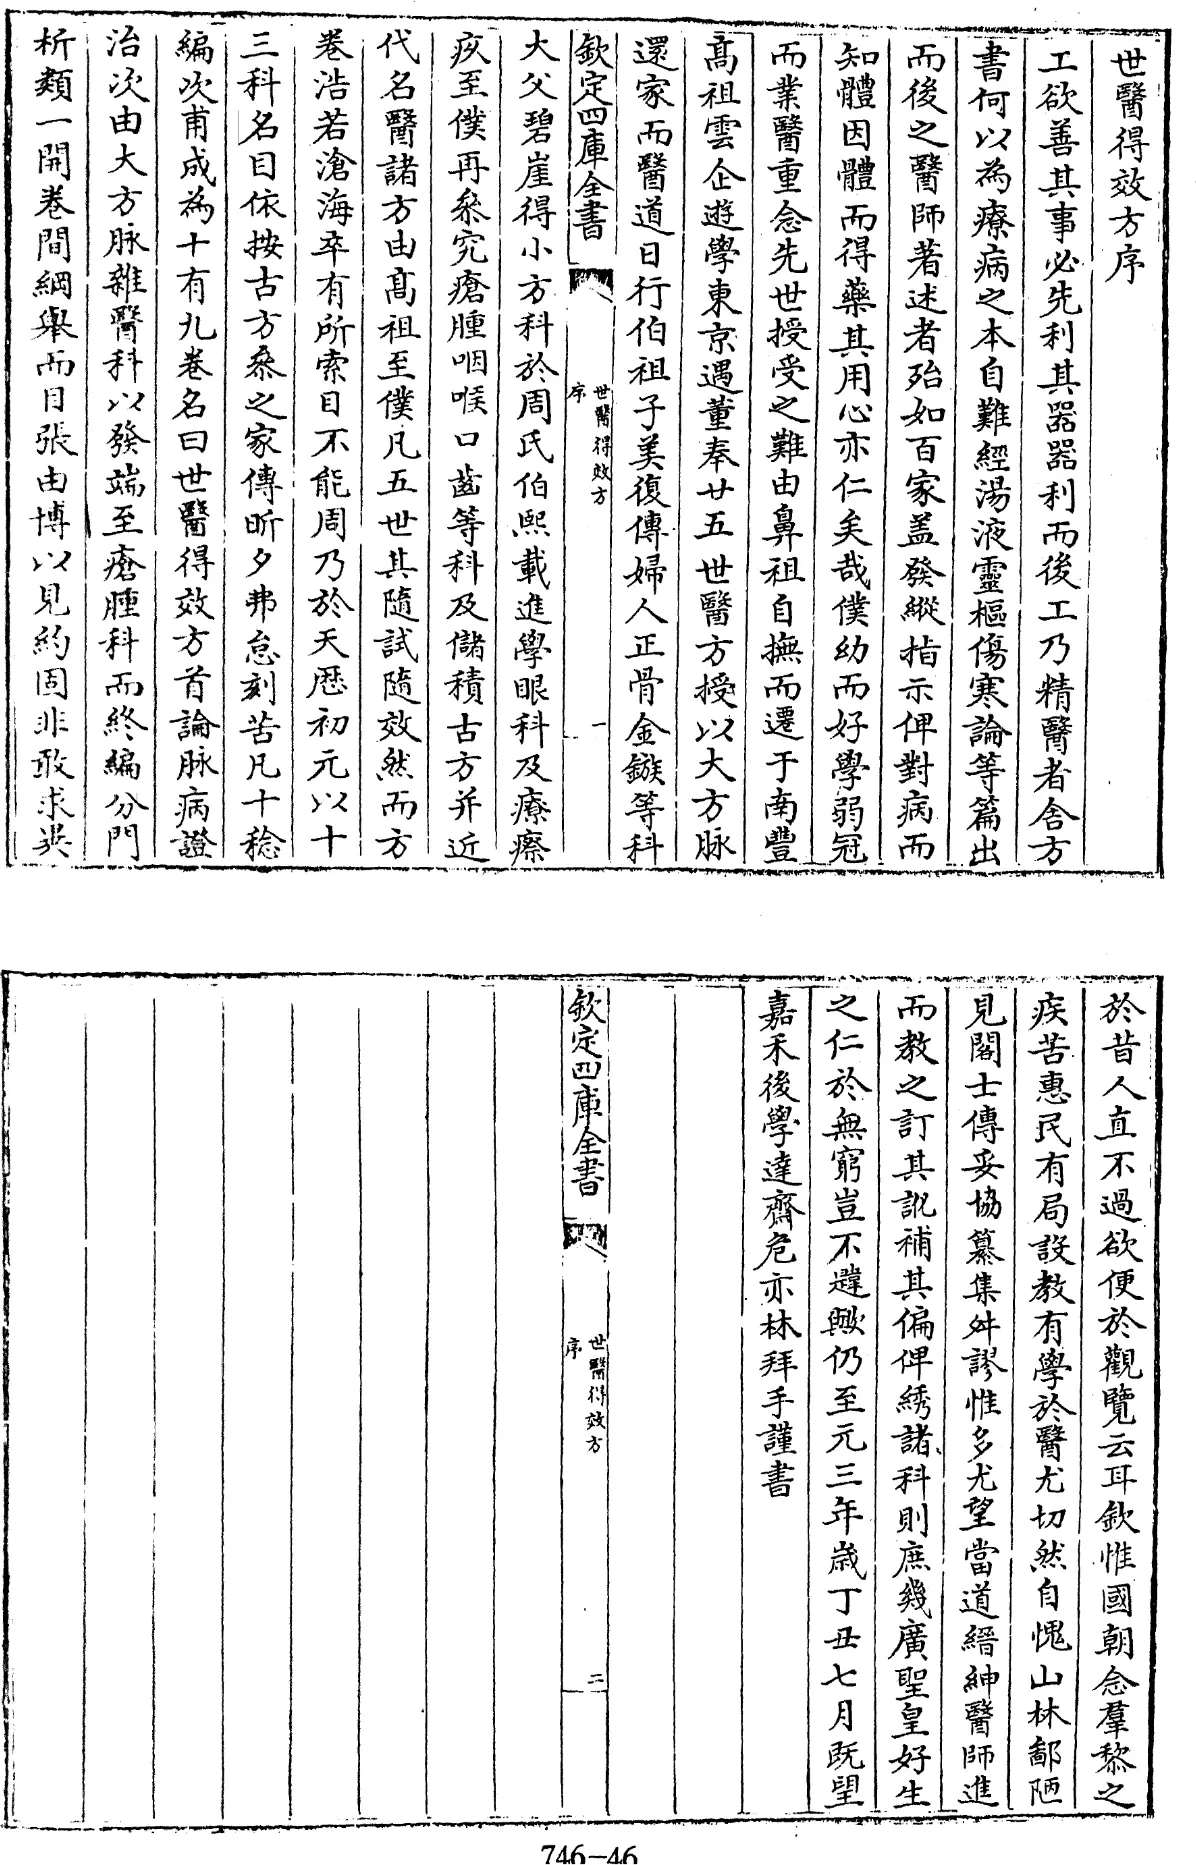 世醫得效方序
工欲善其事必先利其器器利而後工乃精醫者舍方
書何以為療病之本自難經湯液靈樞傷寒論等篇出
而後之醫師著述者殆如百家盖發縱指示俾對病而
知體因體而得藥其用心亦仁矣哉僕幼而好學弱冠
而業醫重念先世授受之難由鼻祖自撫而遷于南豐
高祖雲仚遊學東京遇董奉廿五世醫方授以大方脉
還家而醫道日行伯祖子美復傳婦人正骨金鏃等科
欽定四庫全書
世醫得效方
序
一
大父碧崖得小方科於周氏伯熙載進學眼科及療瘵
疾至僕再叅究瘡腫咽喉口齒等科及儲積古方并近
代名醫諸方由高祖至僕凡五世其隨試隨效然而方
卷浩若滄海卒有所索目不能周乃於天厯初元以十
三科名目依按古方叅之家傳昕夕弗怠刻苦凡十稔
編次甫成為十有九卷名曰世醫得效方首論脉病證
治次由大方脉雜醫科以發端至瘡腫科而終編分門
析類一開卷間綱舉而目張由博以見約固非敢求異
於昔人直不過欲便於觀覽云耳欽惟國朝念羣黎之
疾苦惠民有局設教有學於醫尤切然自愧山林鄙陋
見閣士傳妥協纂集舛謬惟多尤望當道縉紳醫師進
而教之訂其訛補其偏俾綉諸科則庶幾廣聖皇好生
之仁於無窮豈不韙歟仍至元三年歲丁丑七月既望
嘉禾後學達齋危亦林拜手謹書
欽定四庫全書
世醫得效方
序
二
746-46